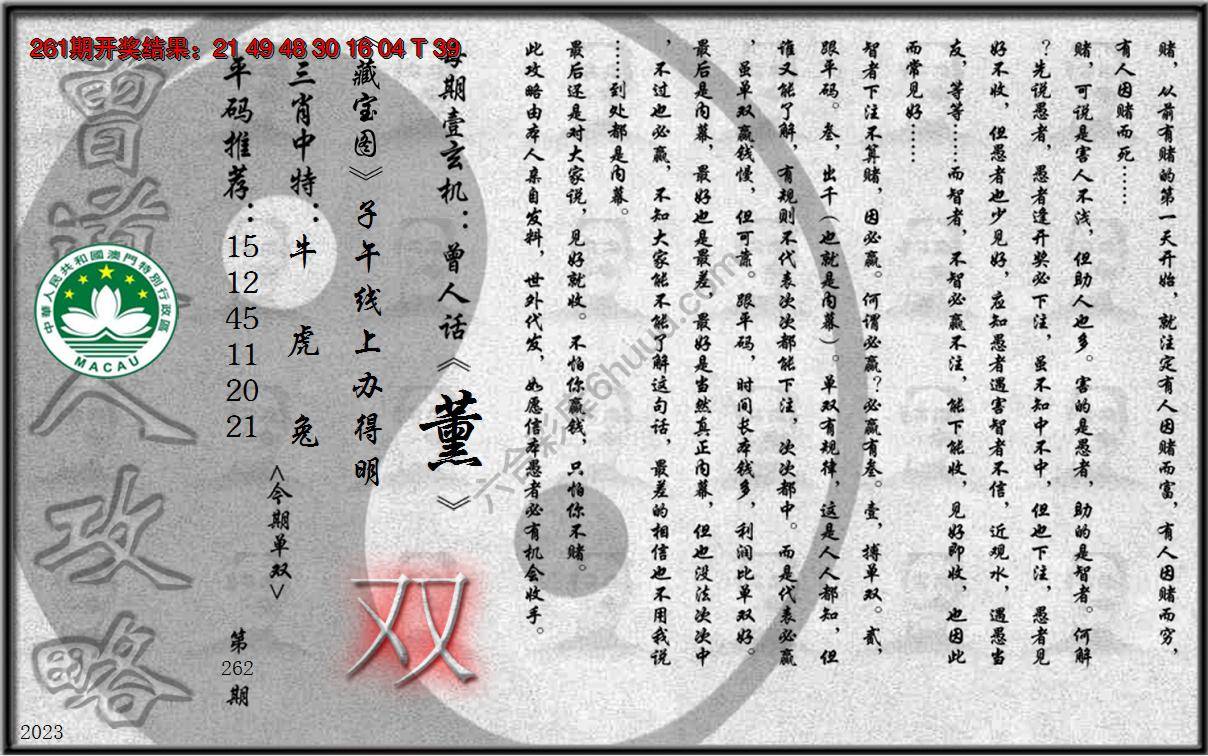 261期开奖结果：21 49 48 30 16 04 T 39
赌，从前有赌的第一天开始，就注定有人因赌而富，有人因赌而穷，
有人因赌而死……
赌，可说是害人不浅，但助人也多。害的是愚者，助的是智者。何解
？先说愚者，愚者逢开奖必下注，虽不知中不中，但也下注，愚者见
好不收，但愚者也少见好，应知愚者遇害智者不信，近观水，遇愚当
友，等等……而智者，不智必赢不注，能下能收，见好即收，也因此
而常见好……
智者下注不算赌，因必赢。何谓必赢？必赢有叁。壹，搏单双。贰，
跟平码。叁，出千（也就是内幕）。单双有规律，这是人人都知，但
谁又能了解，有规则不代表次次都能下注，次次都中。而是代表必赢
，虽单双赢钱慢，但可靠。跟平码，时间长本钱多，利润比单双好。
最后是内幕，最好也是最差，最好是当然真正内幕，但也没法次次中
，不过也必赢，不知大家能不能了解这句话，最差的相信也不用我说
……到处都是内幕。
最后还是对大家说，见好就收。不怕你赢钱，只怕你不赌。
此攻略由本人亲自发料，世外代发，如愿信本愚者必有机会收手。
每期壹玄机：曾人话《薰》
《藏宝图》子午线上办得明
双
三肖中特：牛 虎 兔
<今期单双>
平码推荐：15 12 45 11 20 21
第262期
曾道人攻略
中華人民共和國澳門特別行政區
MACAU
六合彩库6huuu.com
2023